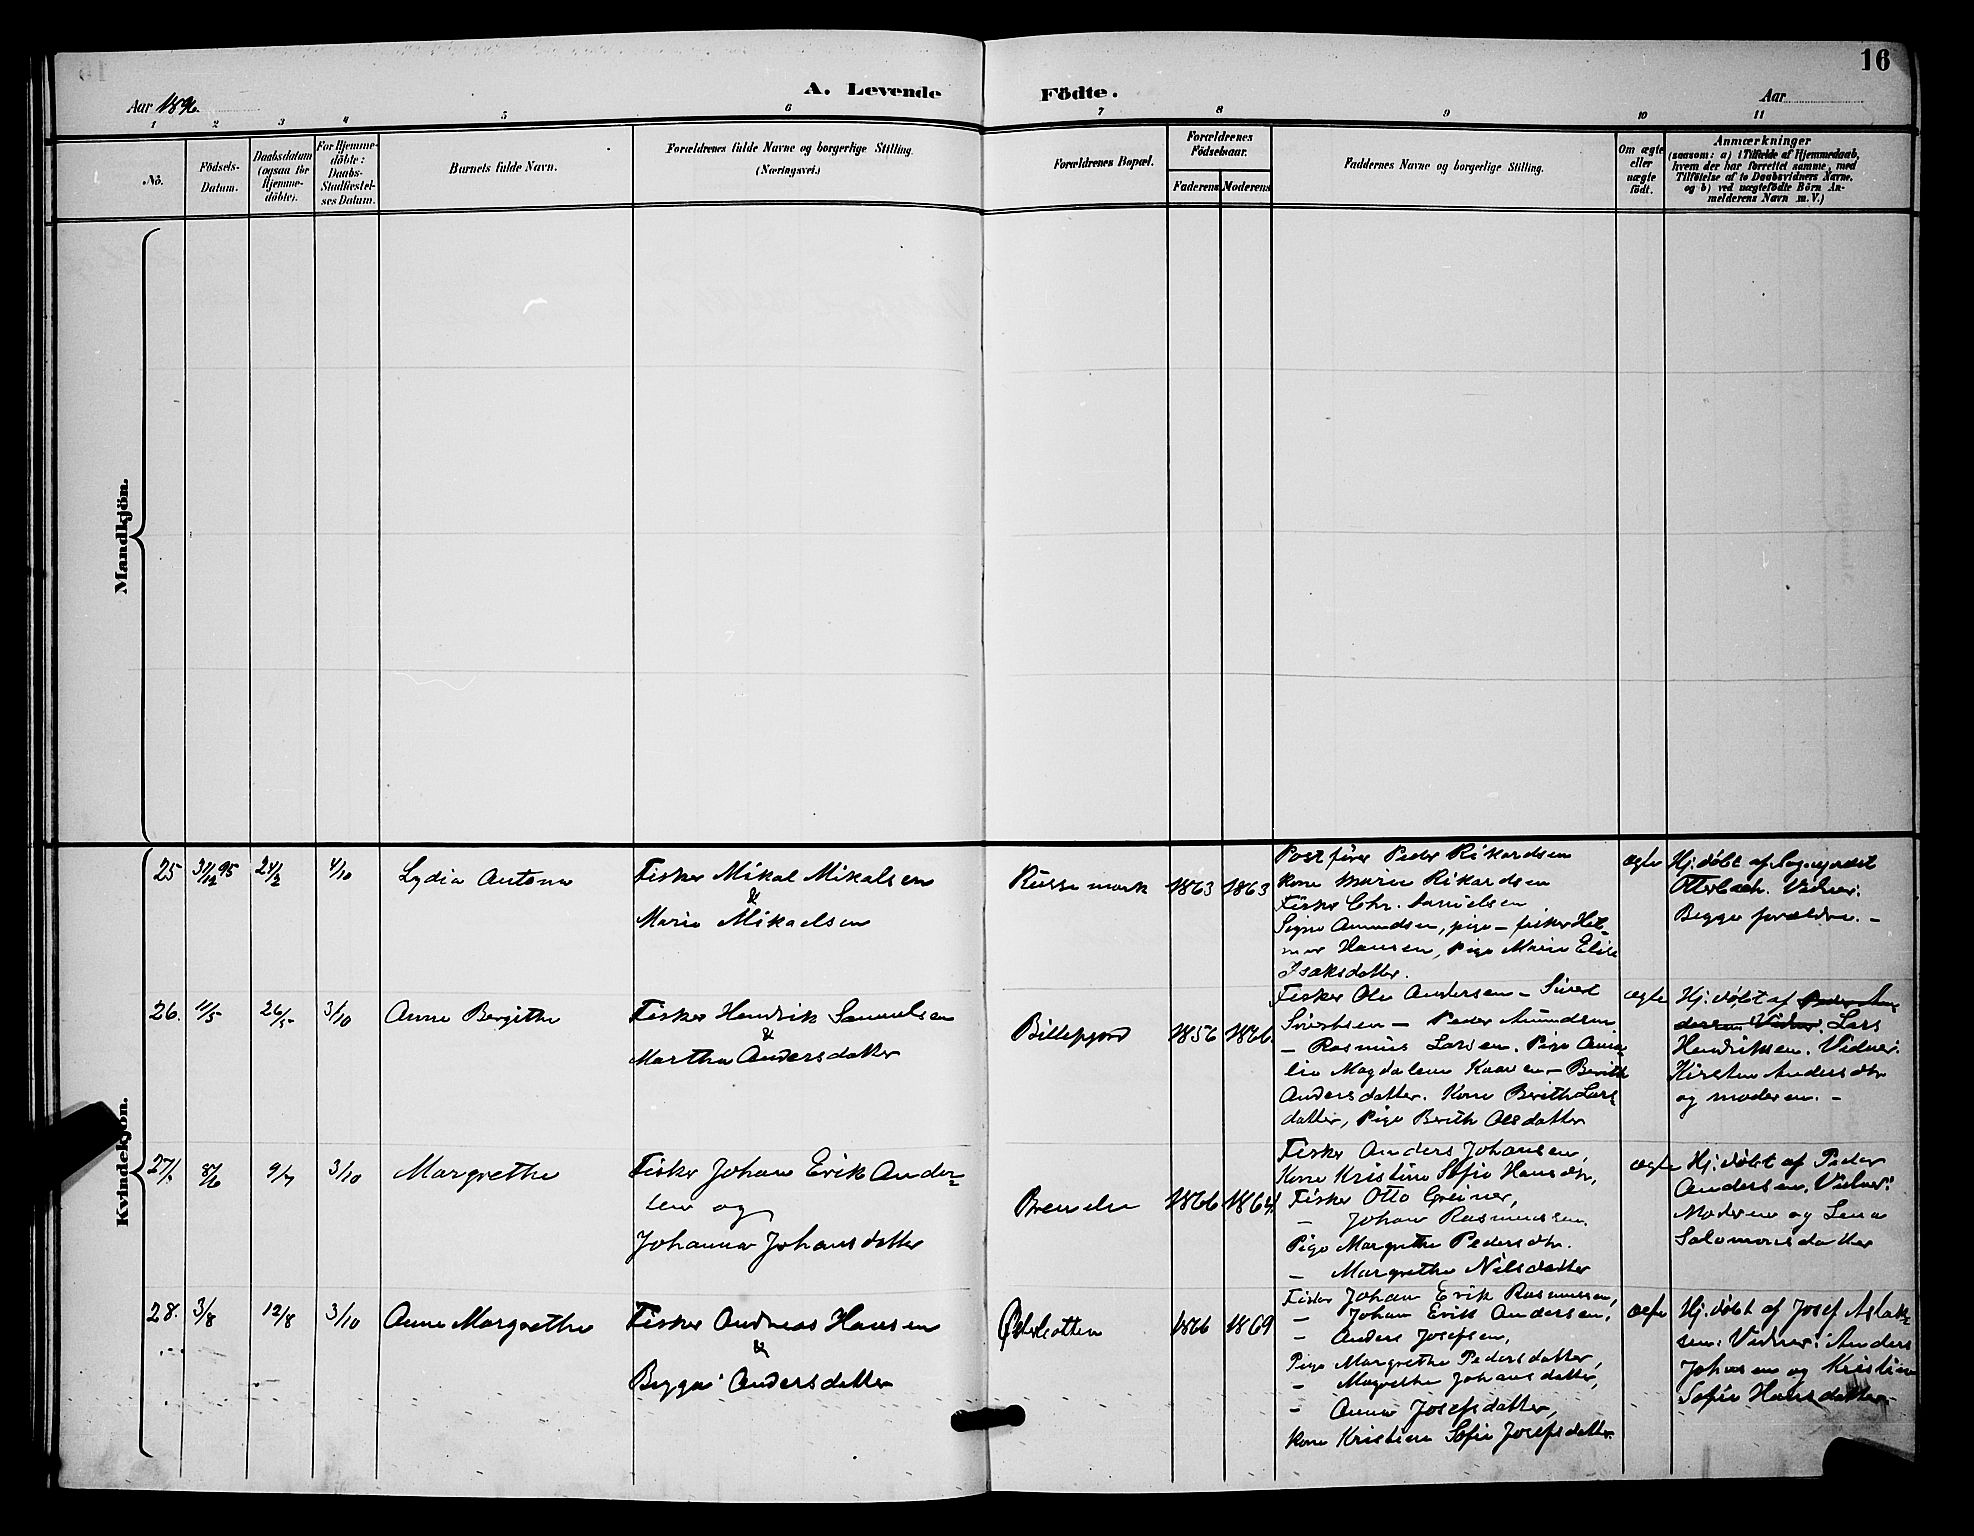 16
A. Levende Födte.
Aar 1896.
Aar
1 2 3 4 5 6 7 8 9 10 11
No.
Födsels-
Datum.
Daabsdatum
(ogsaa för
Hjemme-
döbte).
For Hjemme-
döbte:
Daabs-
Stadfæstel-
ses Datum.
Barnets fulde Navn.
Forældrenes fulde Navne og borgerlige Stilling.
(Næringsvei.)
Forældrenes Bopæl.
Forældrenes
Födselsaar.
Faderens
Moderens
Faddernes Navne og borgerlige Stilling.
Om ægte
eller
uægte
født.
Anmærkninger
(saasom: a) i Tilfælde af Hjemmedaab,
hvem der har forrettet samme, med
Tilföielse af to Daabsvidners Navne,
og b) ved uægtefödte Börn An-
melderens Navn m.V.)
Mandkjön.
Kvindekjön.
25
31/12 95
24/2
4/10
Lydia Antona
Fisker Mikal Mikalsen
&
Marie Mikaelsen
Russemark
1863
1863
Postfører Peder Rikardsen
Kone Marie Rikardsen
Fisker Chr. Danielsen
Signe Amundsen, pige – fisker Hel-
mer Hansen, Pige Marie Elise
Isaksdatter.
ægte
Hj.døbt af
Otterbech. Vidner:
Begge forældre. –
26.
11/5
26/5
3/10
Anne Bergithe
Fisker Hendrik Samuelsen
&
Martha Andersdatter
Billefjord
1856
1866.
Fisker Ole Andersen – Sivert
Sivertsen – Peder Amundsen
– Rasmus Larsen. Pige Ama-
lie Magdalene Kaaren – Berith
Andersdatter. Kone Berith Lars-
datter, Pige Berith Olsdatter
ægte
Hj.døbt af Peder An-
dersen Vidner: Lars
Henriksen. Vidner:
Kirsten Andersdtr
og moderen. –
27.
8/6
9/7
3/10
Margrethe
Fisker Johan Erik Ander-
sen og
Johanna Johansdatter
Brenelv
1866
1864.
Fisker Anders Johansen,
Kone Kristine Sofie Hansdtr,
Fisker Otto Greiner,
– Johan Rasmussen.
Pige Margrethe Pedersdtr.
– Margrethe Nilsdatter
ægte
Hj.døbt af Peder
Andersen. Vidner:
Moderen og Lena
Salomonsdatter
28.
3/8
12/8
3/10
Anne Margrethe
Fisker Andreas Hansen
&
Beggai Andersdatter
Østerbotten
1866
1869
Fisker Johan Erik Rasmussen,
– Johan Erik Andersen,
– Anders Josefsen,
Pige Margrethe Pedersdatter,
– Magrethe Johansdatter,
– Anna Josefsdatter,
Kone Kristine Sofie Josefsdatter.
ægte
Hj.døbt af Josef Aslak-
sen: Vidner: Anders
Johansen og Kristine
Sofie Hansdatter.